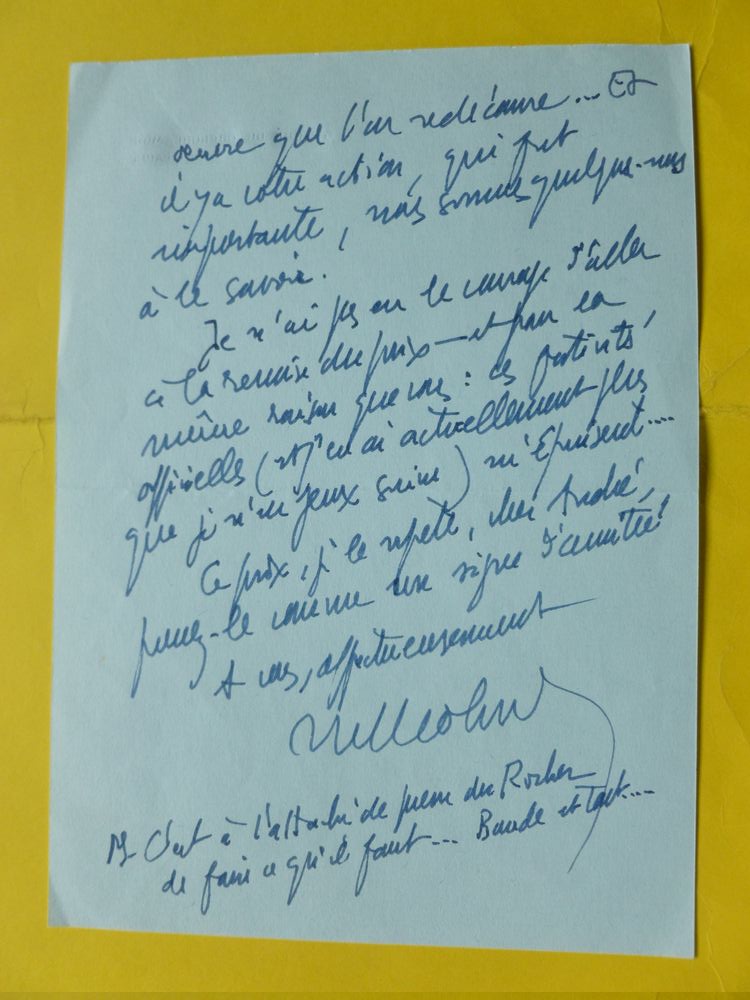 œuvre que l'on redécouvre... Et
il y a votre action, qui fut
importante, nous sommes quelques-uns
à le savoir.
Je n'ai pas eu le courage d'aller
à la remise du prix — et pour la
même raison que vous : ces festivités
officielles (et j'en ai actuellement plus
que je n'en peux suivre) m'épuisent....
Ce prix, je le répète, cher André,
prenez-le comme un signe d'amitié
A vous, affectueusement
PS C'est à l'attachée de presse du Rocher
de faire ce qu'il faut... Bande et tout...